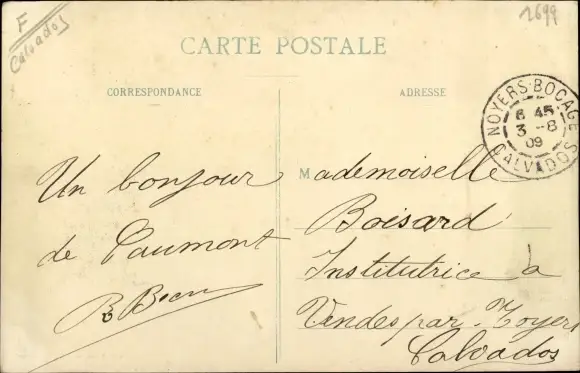 F
Calvados
2699
CARTE POSTALE
CORRESPONDANCE
ADRESSE
NOYERS-BOCAGE
6 45
3 -8
09
CALVADOS
Un bonjour
de Caumont
Mademoiselle
Boisard
Institutrice à
Vendes par Noyers
Calvados